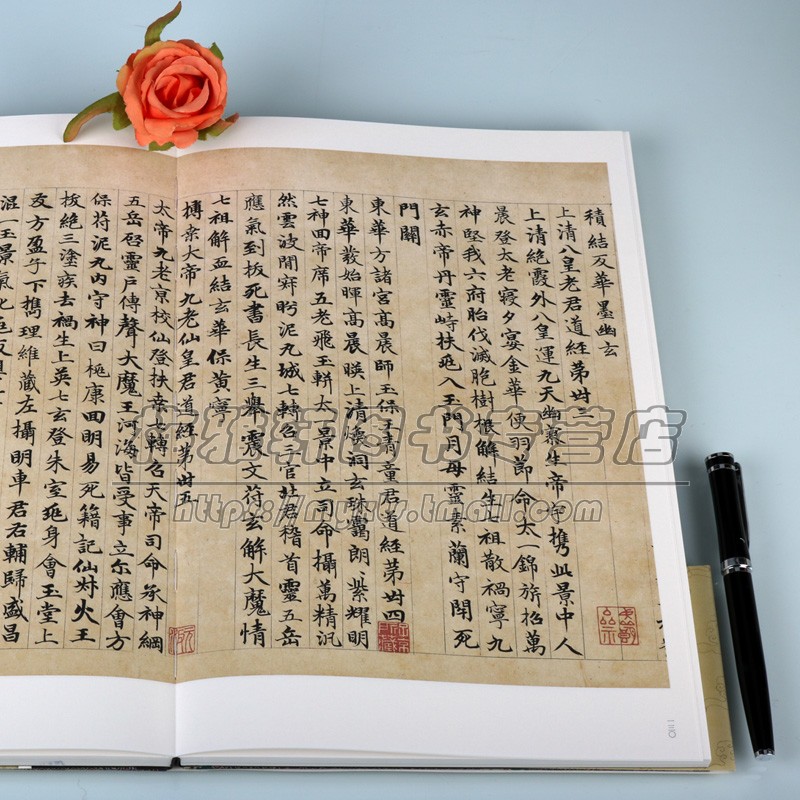 積結反華墨幽玄
上清八皇老君道經第卅三
上清絕霞外八皇運九天幽寥生帝守携此景中人
晨登太老寢夕宴金華便羽節命太一錦旂招萬
神堅我六府胎伐滅胞樹根解結生祖散禍寧九
玄赤帝丹靈峙扶兆入玉門月母靈素蘭守閉死
門關
東華方諸宮高晨師玉保王青童君道經第卅四
東華發始暉高晨暎上清懷洞玄珠靄朗紫耀明
七神回帝席五老飛玉軿太一景中立司命攝萬精汎
然雲波開齊盻泥丸城七轉召三官社君稽首靈五岳
應氣到拔死書長生三舉震文苻玄解大魔情
七祖解血結玄華保黃寧
搏桒大帝九老仙皇君道經第卅五
太帝九老京校仙登扶幸七轉召天帝司命承神綱
五岳啓靈戶傳聲大魔王河海皆受事立尒應會方
保苻泥丸內守神曰康回明易死籍記仙火王
拔絕三塗疾去禍生上英七玄登朱室兆身會玉堂上
方盈乎下携理維藏左攝明車君右輔歸盛昌
混一玉景氣化
图书专营店